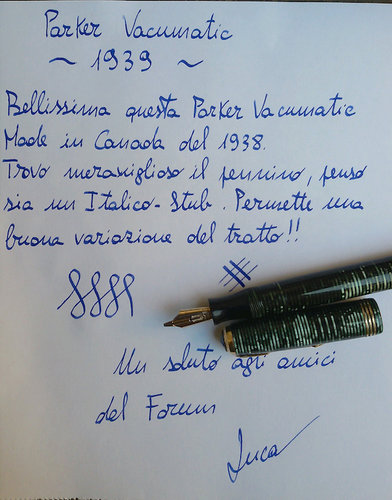 Parker Vacumatic
~ 1939 ~
Bellissima questa Parker Vacumatic
Made in Canada del 1938.
Trovo meraviglioso il pennino, penso
sia un Italico-Stub. Permette una
buona variazione del tratto!!
Un saluto agli amici
del Forum
Luca